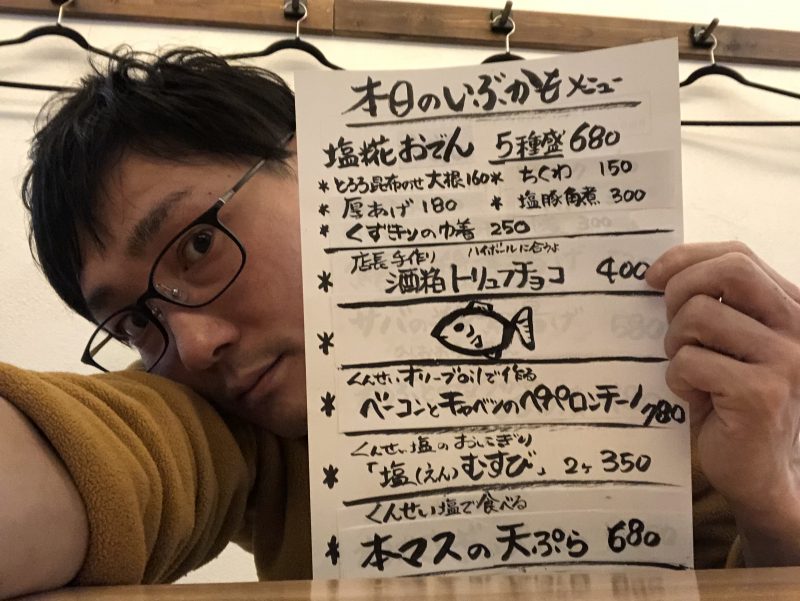 本日のいぶかもメニュー
塩糀おでん 5種盛 680
*とろろ昆布のせ大根160 * ちくわ 150
* 厚あげ 180 * 塩豚角煮 300
* くずきりの巾着 250
店長手作り ハイボールに合うよ
* 酒粕トリュフチョコ 400
*
くんせいオリーブoilで作る
* ベーコンとキャベツのペペロンチーノ 780
くんせい塩のおにぎり
* 「塩(えん)むすび」 2ヶ 350
くんせい塩で食べる
* 本マスの天ぷら 680